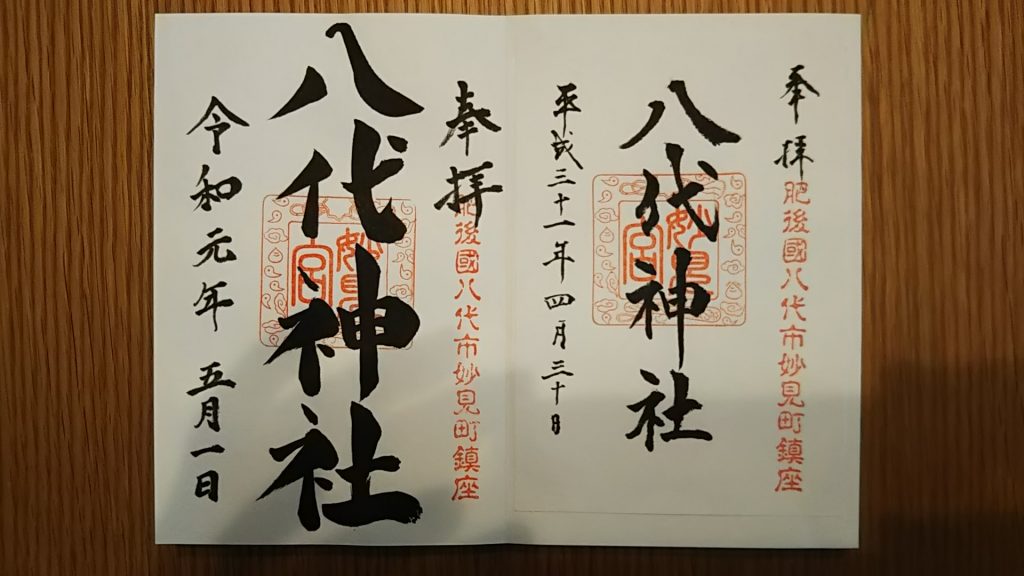 奉拝
肥後國八代市妙見町鎮座
八代神社
妙見宮
平成三十一年四月三十日
奉拝
肥後國八代市妙見町鎮座
八代神社
妙見宮
令和元年五月一日